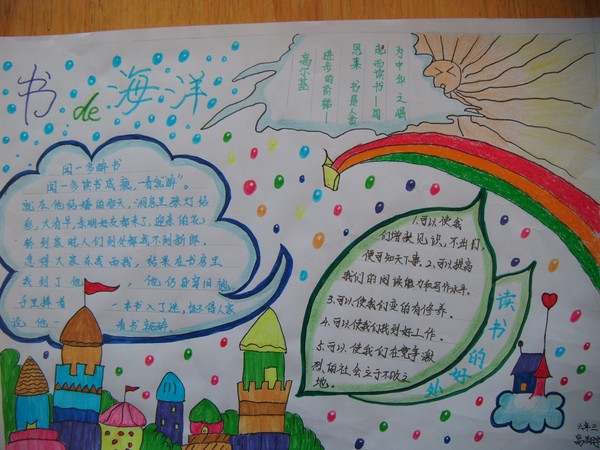 书de海洋
为中华之崛
起而读书——周
恩来 书是人类
进步的阶梯——
高尔基
闻一多醉书
闻一多读书成瘾,一看就“醉”。
就在他结婚的那天,洞房里张灯结
彩,大清早,亲朋好友都来了,迎亲的花
轿到家时人们到处都找不到新郎
急得大家东找西找,结果在书房里
找到了他, 他仍穿旧袍
手里捧着 一本书入了迷,怪不得人家
说他 看书就醉
1.可以使我
们增长见识,不出门,
便可知天下事.2.可以提高
我们的阅读能力和写作水平.
3.可以使我们变的有修养.
4.可以使我们找到好工作.
5.可以使我们在竞争激
烈的社会立于不败之
地.
读书的好处
六年三